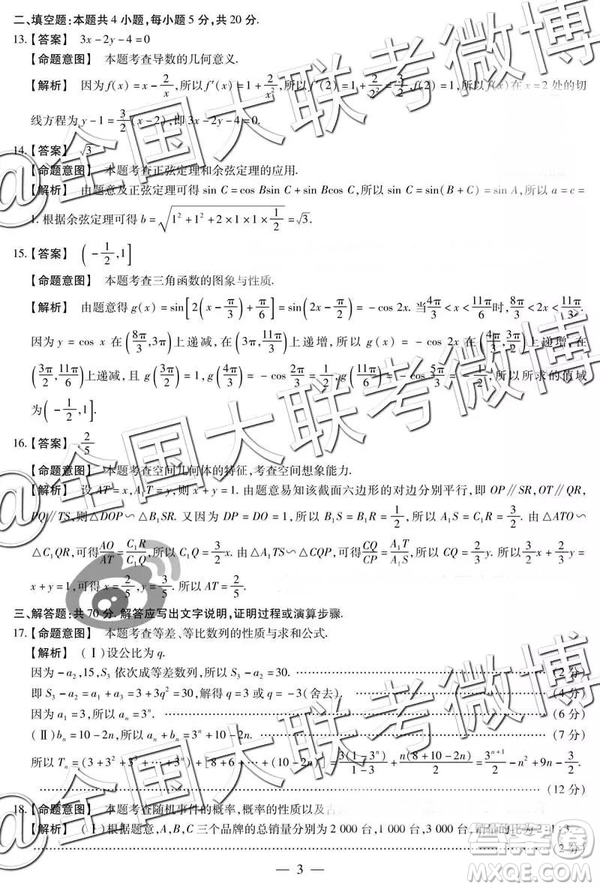 二、填空题:本题共 4 小题,每小题 5 分,共 20 分.
13.【答案】 3x-2y-4=0
【命题意图】 本题考查导数的几何意义.
【解析】 因为 f(x)=x-2/x,所以 f′(x)=1+2/x²,所以 f′(2)=1+2/2²=3/2,所以 f(x)在 x=2 处的切
线方程为 y-1=3/2(x-2),即 3x-2y-4=0.
14.【答案】 √3
【命题意图】 本题考查正弦定理和余弦定理的应用.
【解析】 由题意及正弦定理可得 sin C=cos Bsin C+sin Bcos C,所以 sin C=sin(B+C)=sin A,所以 a=c=
1.根据余弦定理可得 b=√(1²+1²+2×1×1×1/2)=√3.
15.【答案】 (-1/2,1]
【命题意图】 本题考查三角函数的图象与性质.
【解析】 由题意得 g(x)=sin[2(x-π/3)+π/6]=sin(2x-π/2)=-cos 2x. 当4π/3<x<11π/6时,8π/3<2x<11π/3.
因为 y=cos x 在(8π/3,3π)上递减,在(3π,11π/3)上递增,所以 g(x)在(4π/3,3π/2)上递增,在
(3π/2,11π/6)上递减,且 g(3π/2)=-cos 3π=1,g(4π/3)=-cos 8π/3=1/2,g(11π/6)=-cos 11π/3=-1/2,所以所求的值域
为(-1/2,1].
16.【答案】 2/5
【命题意图】 本题考查空间几何体的特征,考查空间想象能力.
【解析】 设 AT=x,A₁T=y,则 x+y=1. 由题意易知该截面六边形的对边分别平行,即 OP∥SR,OT∥QR,
PQ∥TS,则△DOP∽△B₁SR. 又因为 DP=DO=1,所以 B₁S=B₁R=1/2,所以 A₁S=C₁R=3/2. 由△ATO∽
△C₁QR,可得AO/AT=C₁R/C₁Q
由△A₁TS∽△CQP,可得CQ/CP=A₁T/A₁S
x+y=1,可得 x=2/5,y=3/5. 所以 AT=2/5.
三、解答题:共 70 分. 解答应写出文字说明,证明过程或演算步骤.
17.【命题意图】 本题考查等差、等比数列的性质与求和公式.
【解析】 (Ⅰ)设公比为 q.
因为 -a₂,15,S₃ 依次成等差数列,所以 S₃-a₂=30. (2 分)
即 S₃-a₂=a₁+a₃=3+3q²=30,解得 q=3 或 q=-3(舍去). (4 分)
因为 a₁=3,所以 aₙ=3ⁿ. (6 分)
(Ⅱ)bₙ=10-2n,所以 aₙ+bₙ=3ⁿ+10-2n. (7 分)
所以 Tₙ=(3+3²+…+3ⁿ)+[8+6+…+(10-2n)]=3(1-3ⁿ)/(1-3)+n(8+10-2n)/2=3ⁿ⁺¹/2-n²+9n-3/2.
(12 分)
18.【命题意图】 本题考查随机事件的概率,概率的性质以及古
【解析】 (Ⅰ)根据题意,A,B,C 三个品牌的总数量分别为 2 000 台,1 000 台,3 000 台,
(2 分)
— 3 —
@全国大联考微博
@全国大联考微博
@全国大联考微博